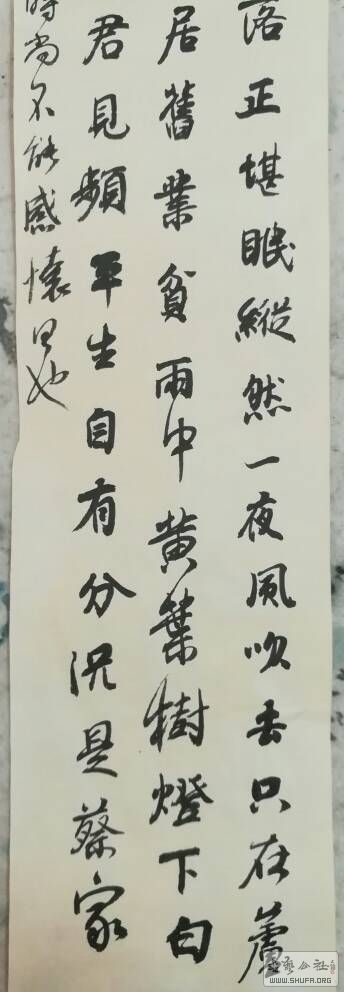 落正堪眠縱然一夜風吹去只在蘆
居舊業貧雨中黃葉樹燈下白
君見頻平生自有分況是蔡家
時尚不能感懷日也
書藝公社
WWW.SHUFA.ORG